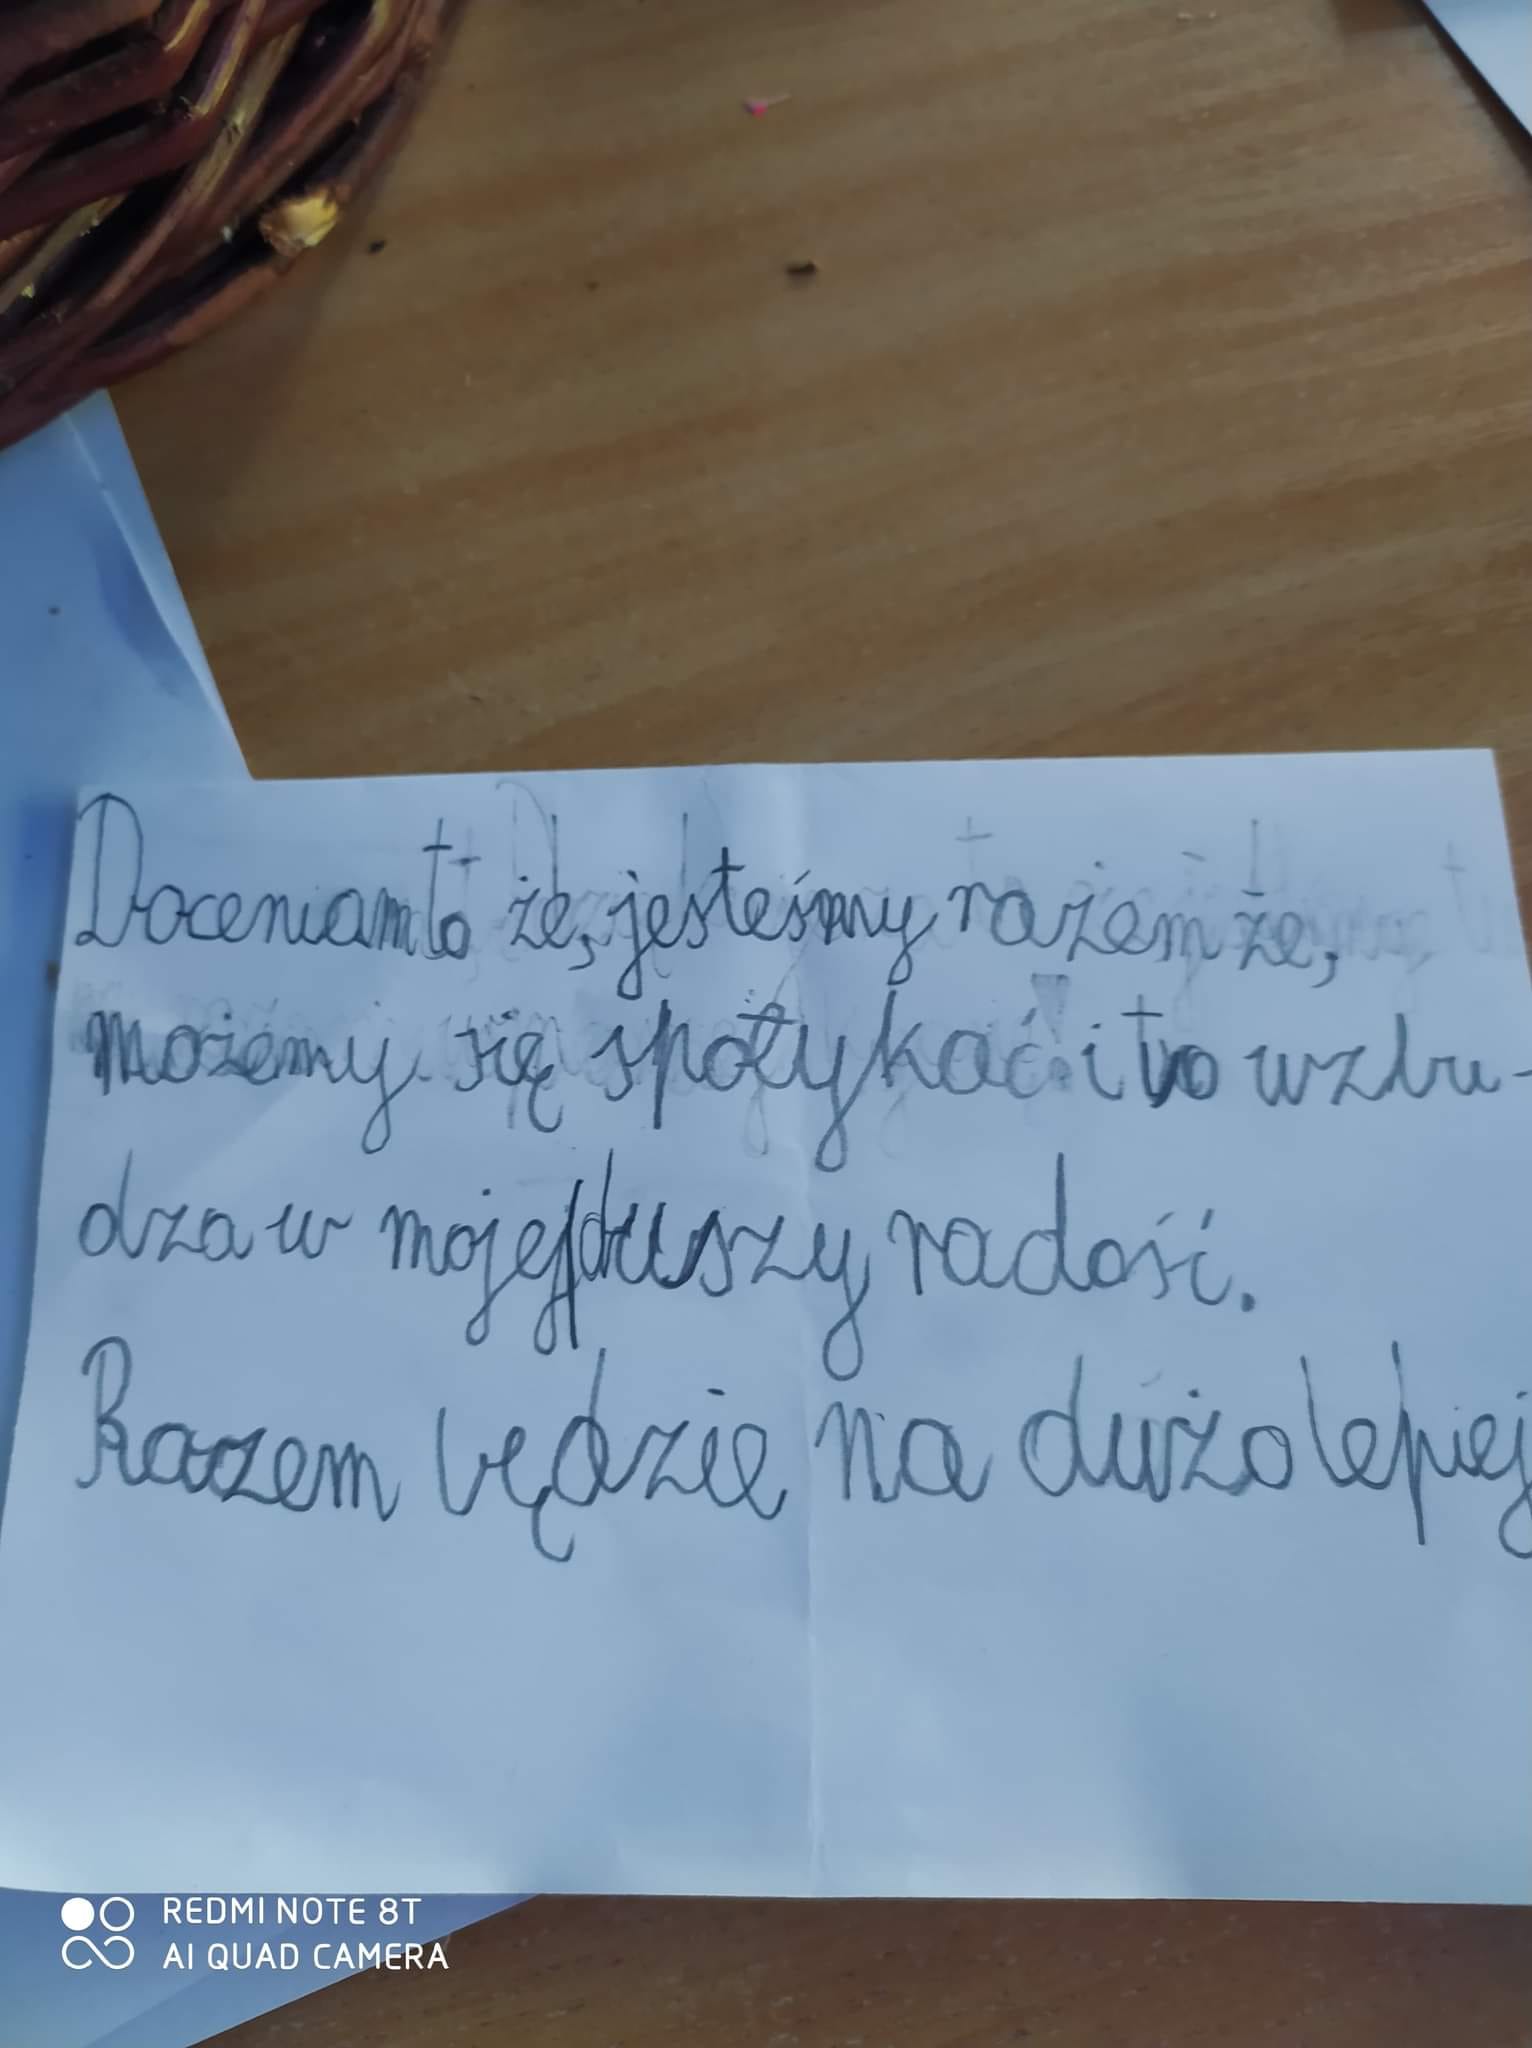 Doceniam to że, jesteśmy rażem że,
możemy się spotykać i to wzbu-
dza w mojej duszy radość.
Razem będzie na dużo lepiej
REDMI NOTE 8T
AI QUAD CAMERA